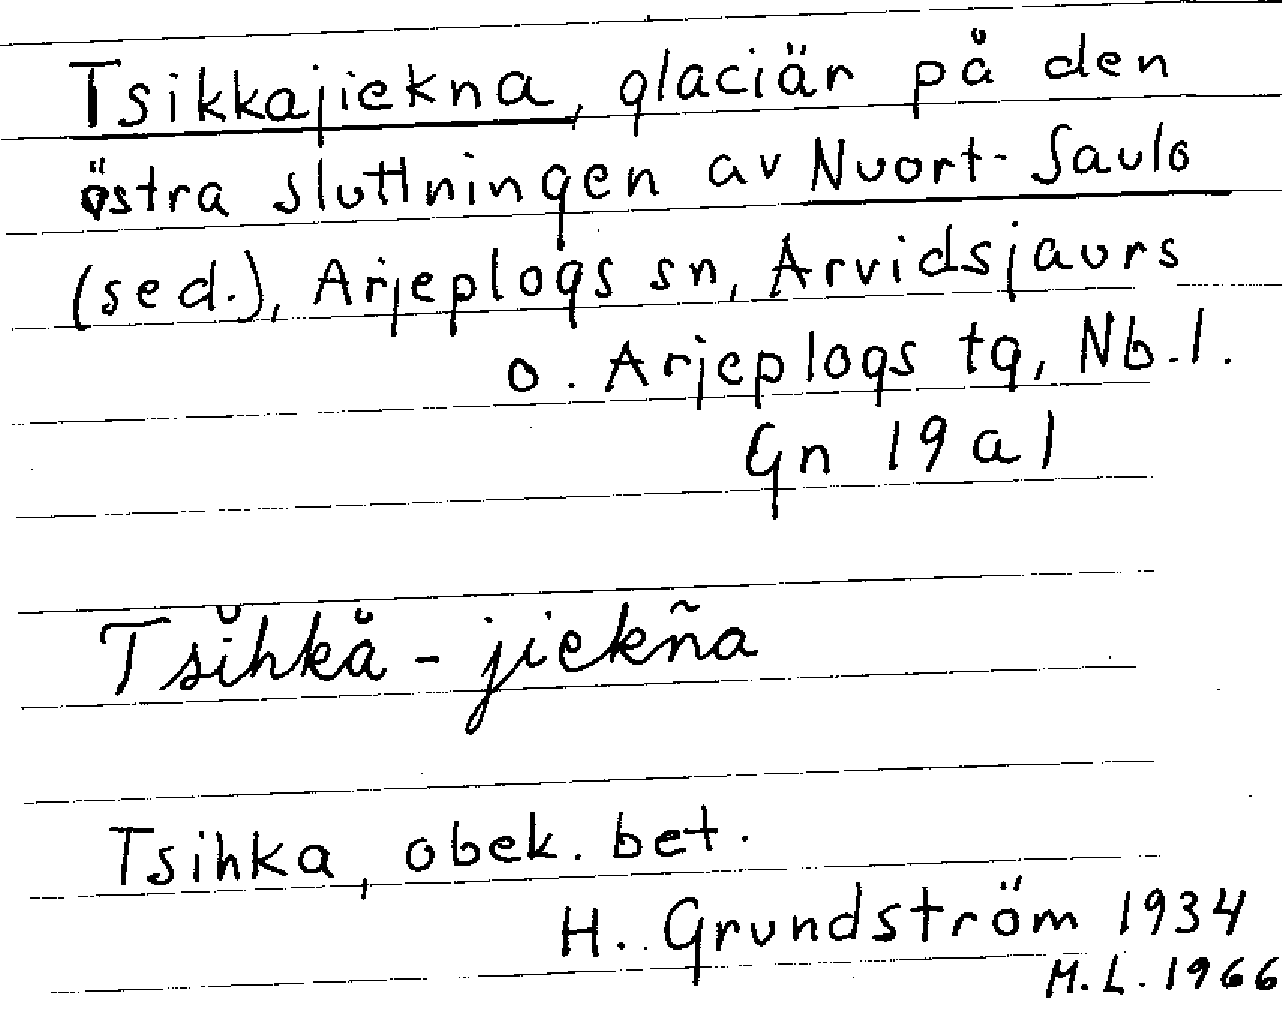 Tsikkajiekna, glaciär på den
östra sluttningen av Nuort-Saulo
(sed.), Arjeplogs sn, Arvidsjaurs
o. Arjeplogs tg, Nb.l.
Gn 19 a 1
Tsĭhkå̆ - jiekña
Tsihka, obek. bet.
H. Grundström 1934
M.L. 1966